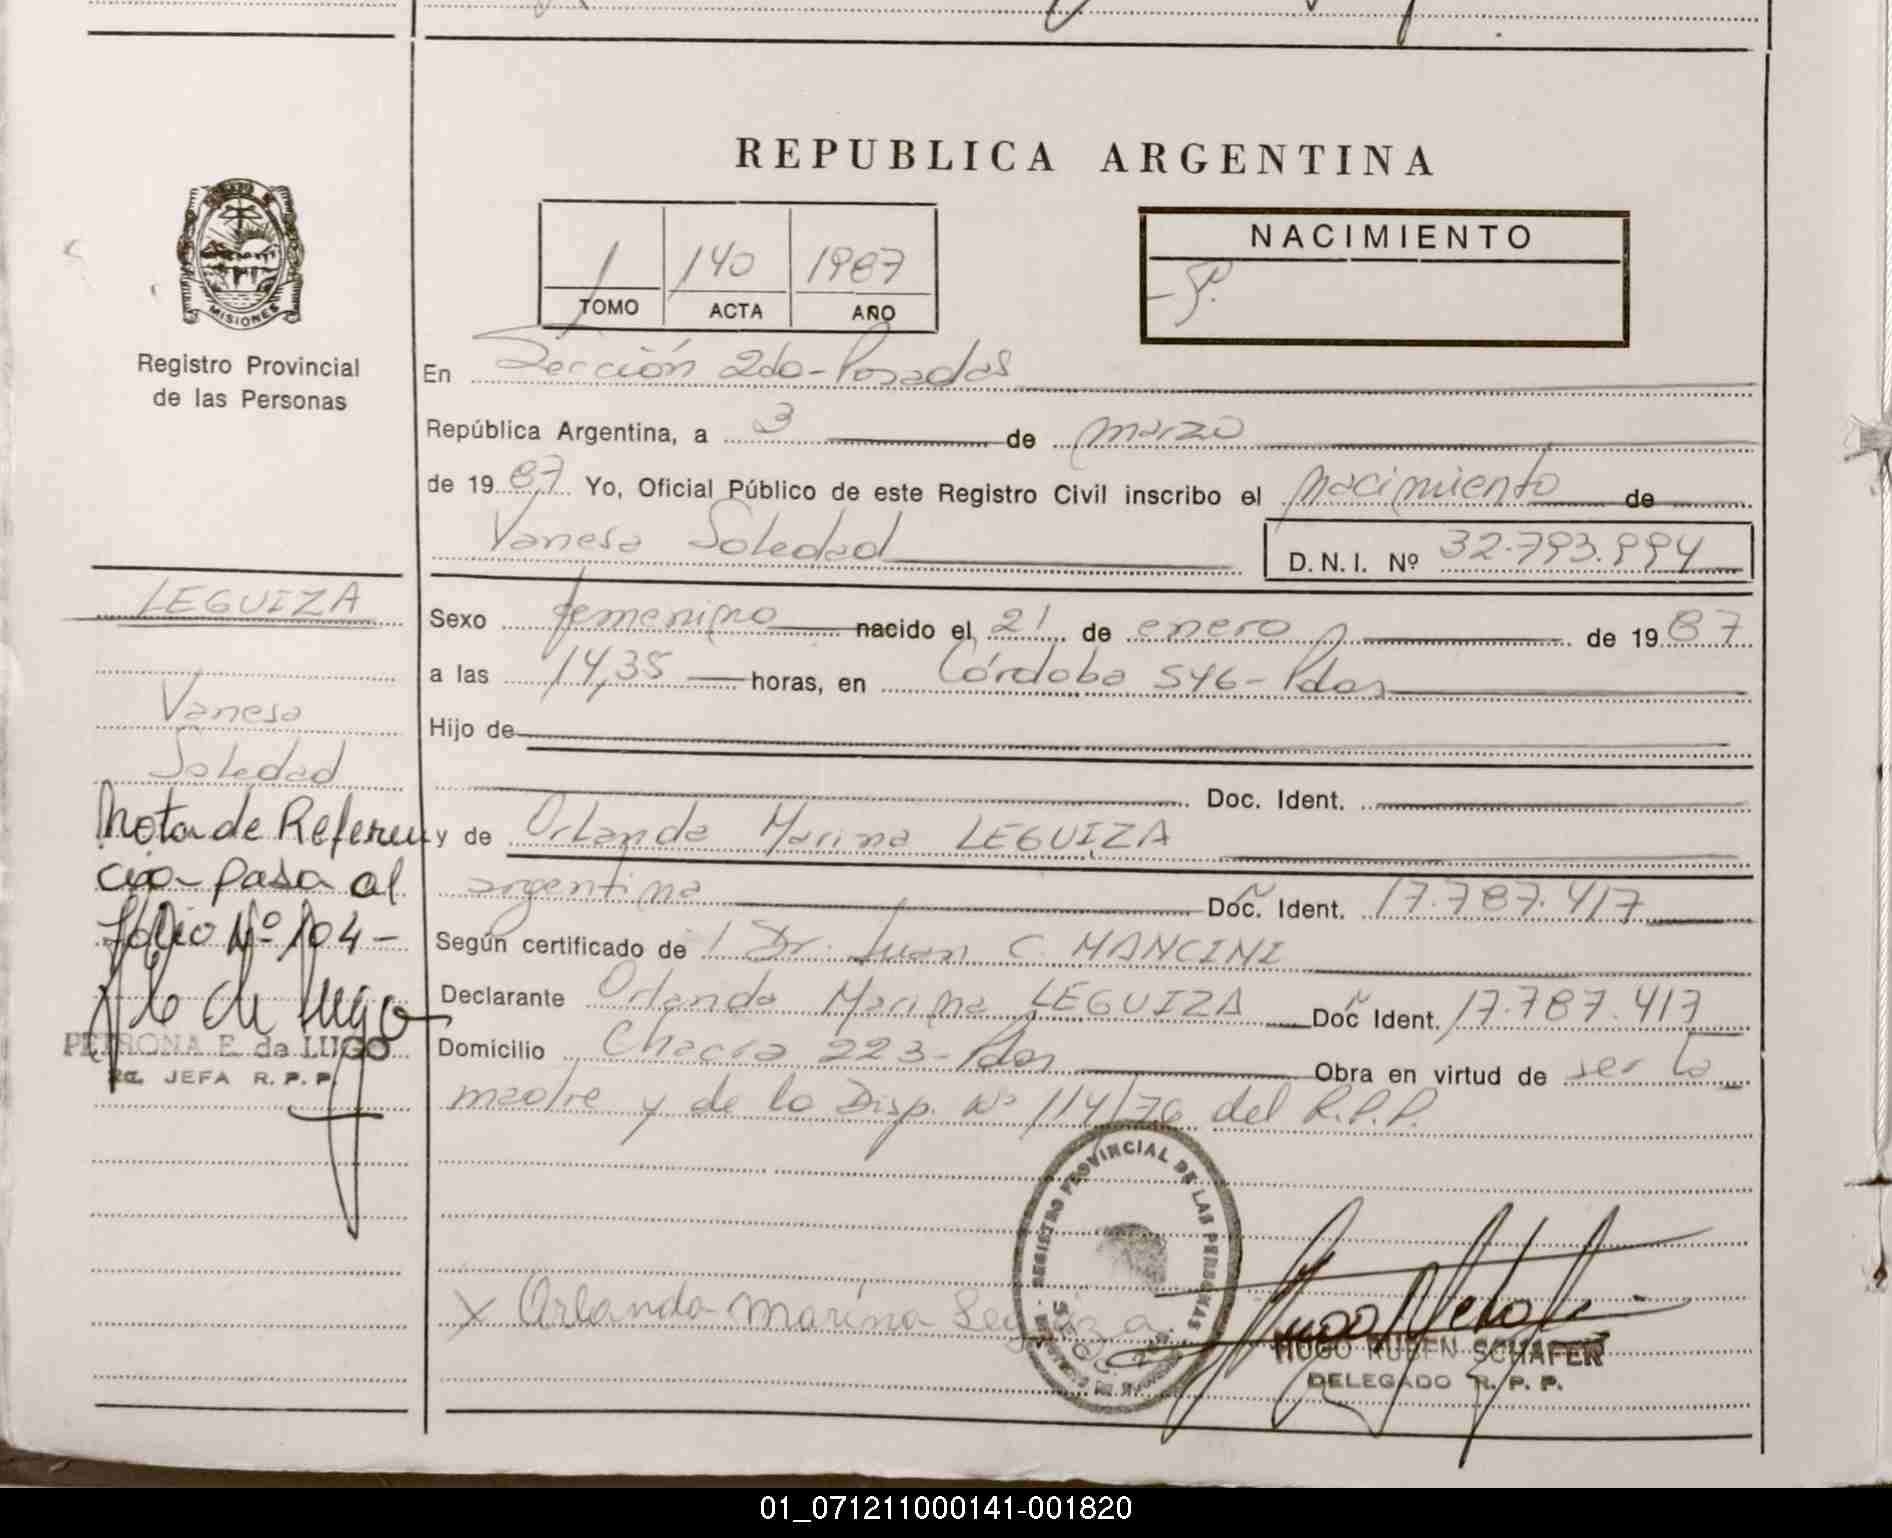 REPUBLICA ARGENTINA
MISIONES
Registro Provincial
de las Personas
1 140 1987
TOMO ACTA AÑO
NACIMIENTO
En Sección 2da-Posadas
República Argentina, a 3 de marzo
de 1987 Yo, Oficial Público de este Registro Civil inscribo el nacimiento de
Vanesa Soledad D.N.I. Nº 32.793.994
LEGUIZA
Vanesa
Soledad
Sexo femenino nacido el 21 de enero de 1987
a las 14,35 horas, en Córdoba 546-Pdas
Hijo de
Doc. Ident.
y de Orlanda Marina LEGUIZA
argentina Doc. Ident. 17.787.417
Según certificado de Dr. Juan C. MANCINI
Declarante Orlanda Marina LEGUIZA Doc Ident. 17.787.417
Domicilio Chacra 223-Pdas Obra en virtud de ser la
madre y de la Disp. Nº 114/76 del R.P.P.
Nota de Referen
cia pasa al
folio Nº 104-
PETRONA E. de LUGO
JEFA R. P. P.
REGISTRO PROVINCIAL DE LAS PERSONAS
x Orlanda Marina Leguiza
HUGO RUBEN SCHAFER
DELEGADO R. P. P.
01_071211000141-001820